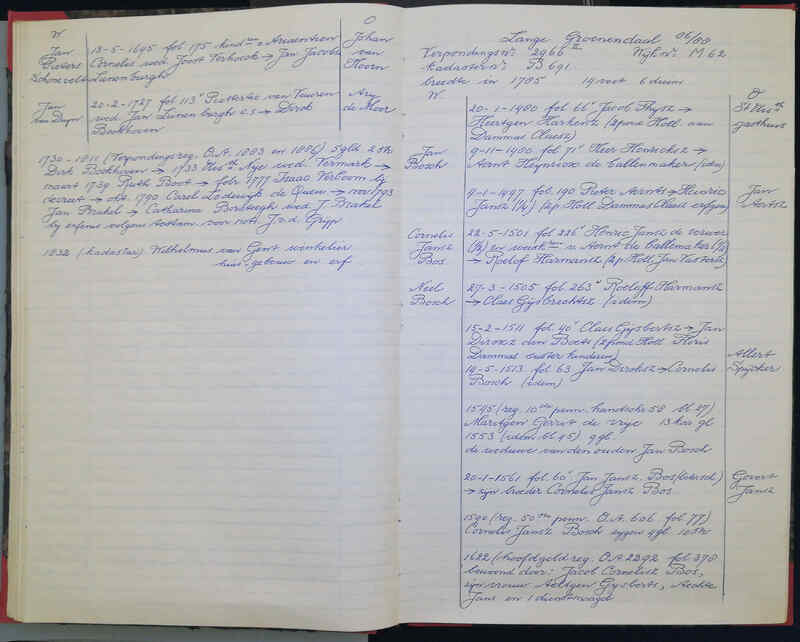 W
O
Jan
Pieters
Schoneveld
13-5-1695 fol 175 kind ren v Ariaentien
Cornelis wed Joost Verhoeck → Jan Jacobs
Lunenburgh
Johan
van
Hoorn
Jan
van Duyn
20-2-1727 fol 113v Pietertie van Vuuren
wed Jan Lunenburgh c.s → Dirk
Bockhoven
Ary
de Moor
1730-1811 (Verpondingsreg. O.A. 1883 en 1886) 5 gld 2 st
Dirk Bokhoven → 1733 Neeltje Nyé wed Vermark →
maart 1759 Ruth Boot → febr 1777 Isaac Verboom by
decreet → okt. 1790 Carel Lodewijk de Quien → nov 1793
Jan Brakel → Catharina wed J. Brakel
by erfenis volgens testam. voor not. J. v. d. Gijp
1832 (kadaster) Wilhelmus van Gent winkelier
huis gebouw en erf
Lange Groenendaal 86/88
Verpondingsnr: 2966 II Wijknr: M. 62
Kadasternr: B 691
breedte in 1785 19 voet 6 duim
W.
O
20-1-1480 fol 66v Jacob Thysz →
Heertgen Harkensz (2 pond Holl. aan
Dammas Claesz)
St Elis th
gasthuis
Jan
Bosch
9-11-1480 fol 71v Heer Henricksz →
Aernt Heynricxz de ballenmaker (idem)
9-1-1497 fol. 190 Pieter Aernts → Henric
Jansz (½) (2 p Holl Dammas Claesz erfgen)
Jan
Aertsz
Cornelis
Jansz
Bos
22-5-1501 fol 226v Henric Jansz de verwer
(½) en weesk ren v Aernt de ballemaker (½)
→ Roelof Harmansz (2 p Holl Jan Vastertsz)
Neel
Bosch
27-3-1505 fol 263v Roeloff Harmansz
→ Claes Gijsbrechtsz (idem)
15-2-1511 fol 40v Claes Gijsbertsz → Jan
Dircxz den Boets (2 pond Holl Floris
Dammas susterkinderen)
14-5-1513 fol 63 Jan Dircksz → Cornelis
Bosch (idem)
Allert
Spijcker
1545 (reg. 10de penn. handschr. 58 bl 27)
Maritgen Gerrit de vrije 13 kar gl
1553 (idem bl 45) 9 gl.
de weduwe van den ouden Jan Bosch
20-1-1561 fol 60v Jan Jansz. Bos (Bosch)
→ zijn broeder Cornelis Jansz Bos
Govert
Jansz
1590 (reg. 50ste penn. O.A. 606 fol 77)
Cornelis Jansz Bosch eygen 9 gl 10 st
1622 (hoofdgeldreg. O.A 2292 fol 378
bewoond door: Jacob Cornelisz Bos,
zijn vrouw Aeltgen Gysberts, Aechte
Jans en 1 dienstmaagd